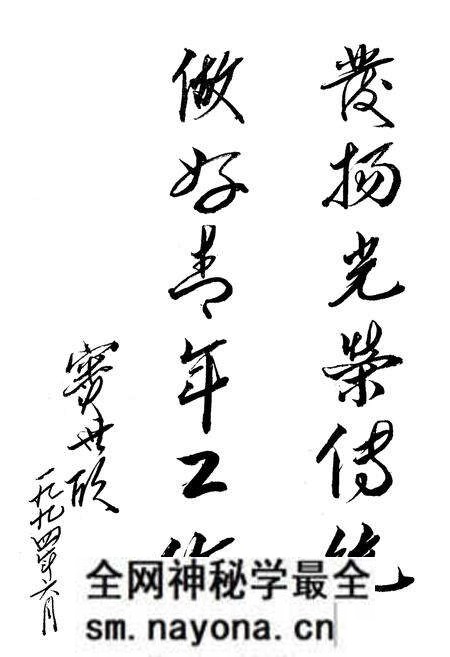 發扬光榮傳統
做好青年工作
世欣
一九九四年六月
全网神秘学最全
sm.nayona.cn